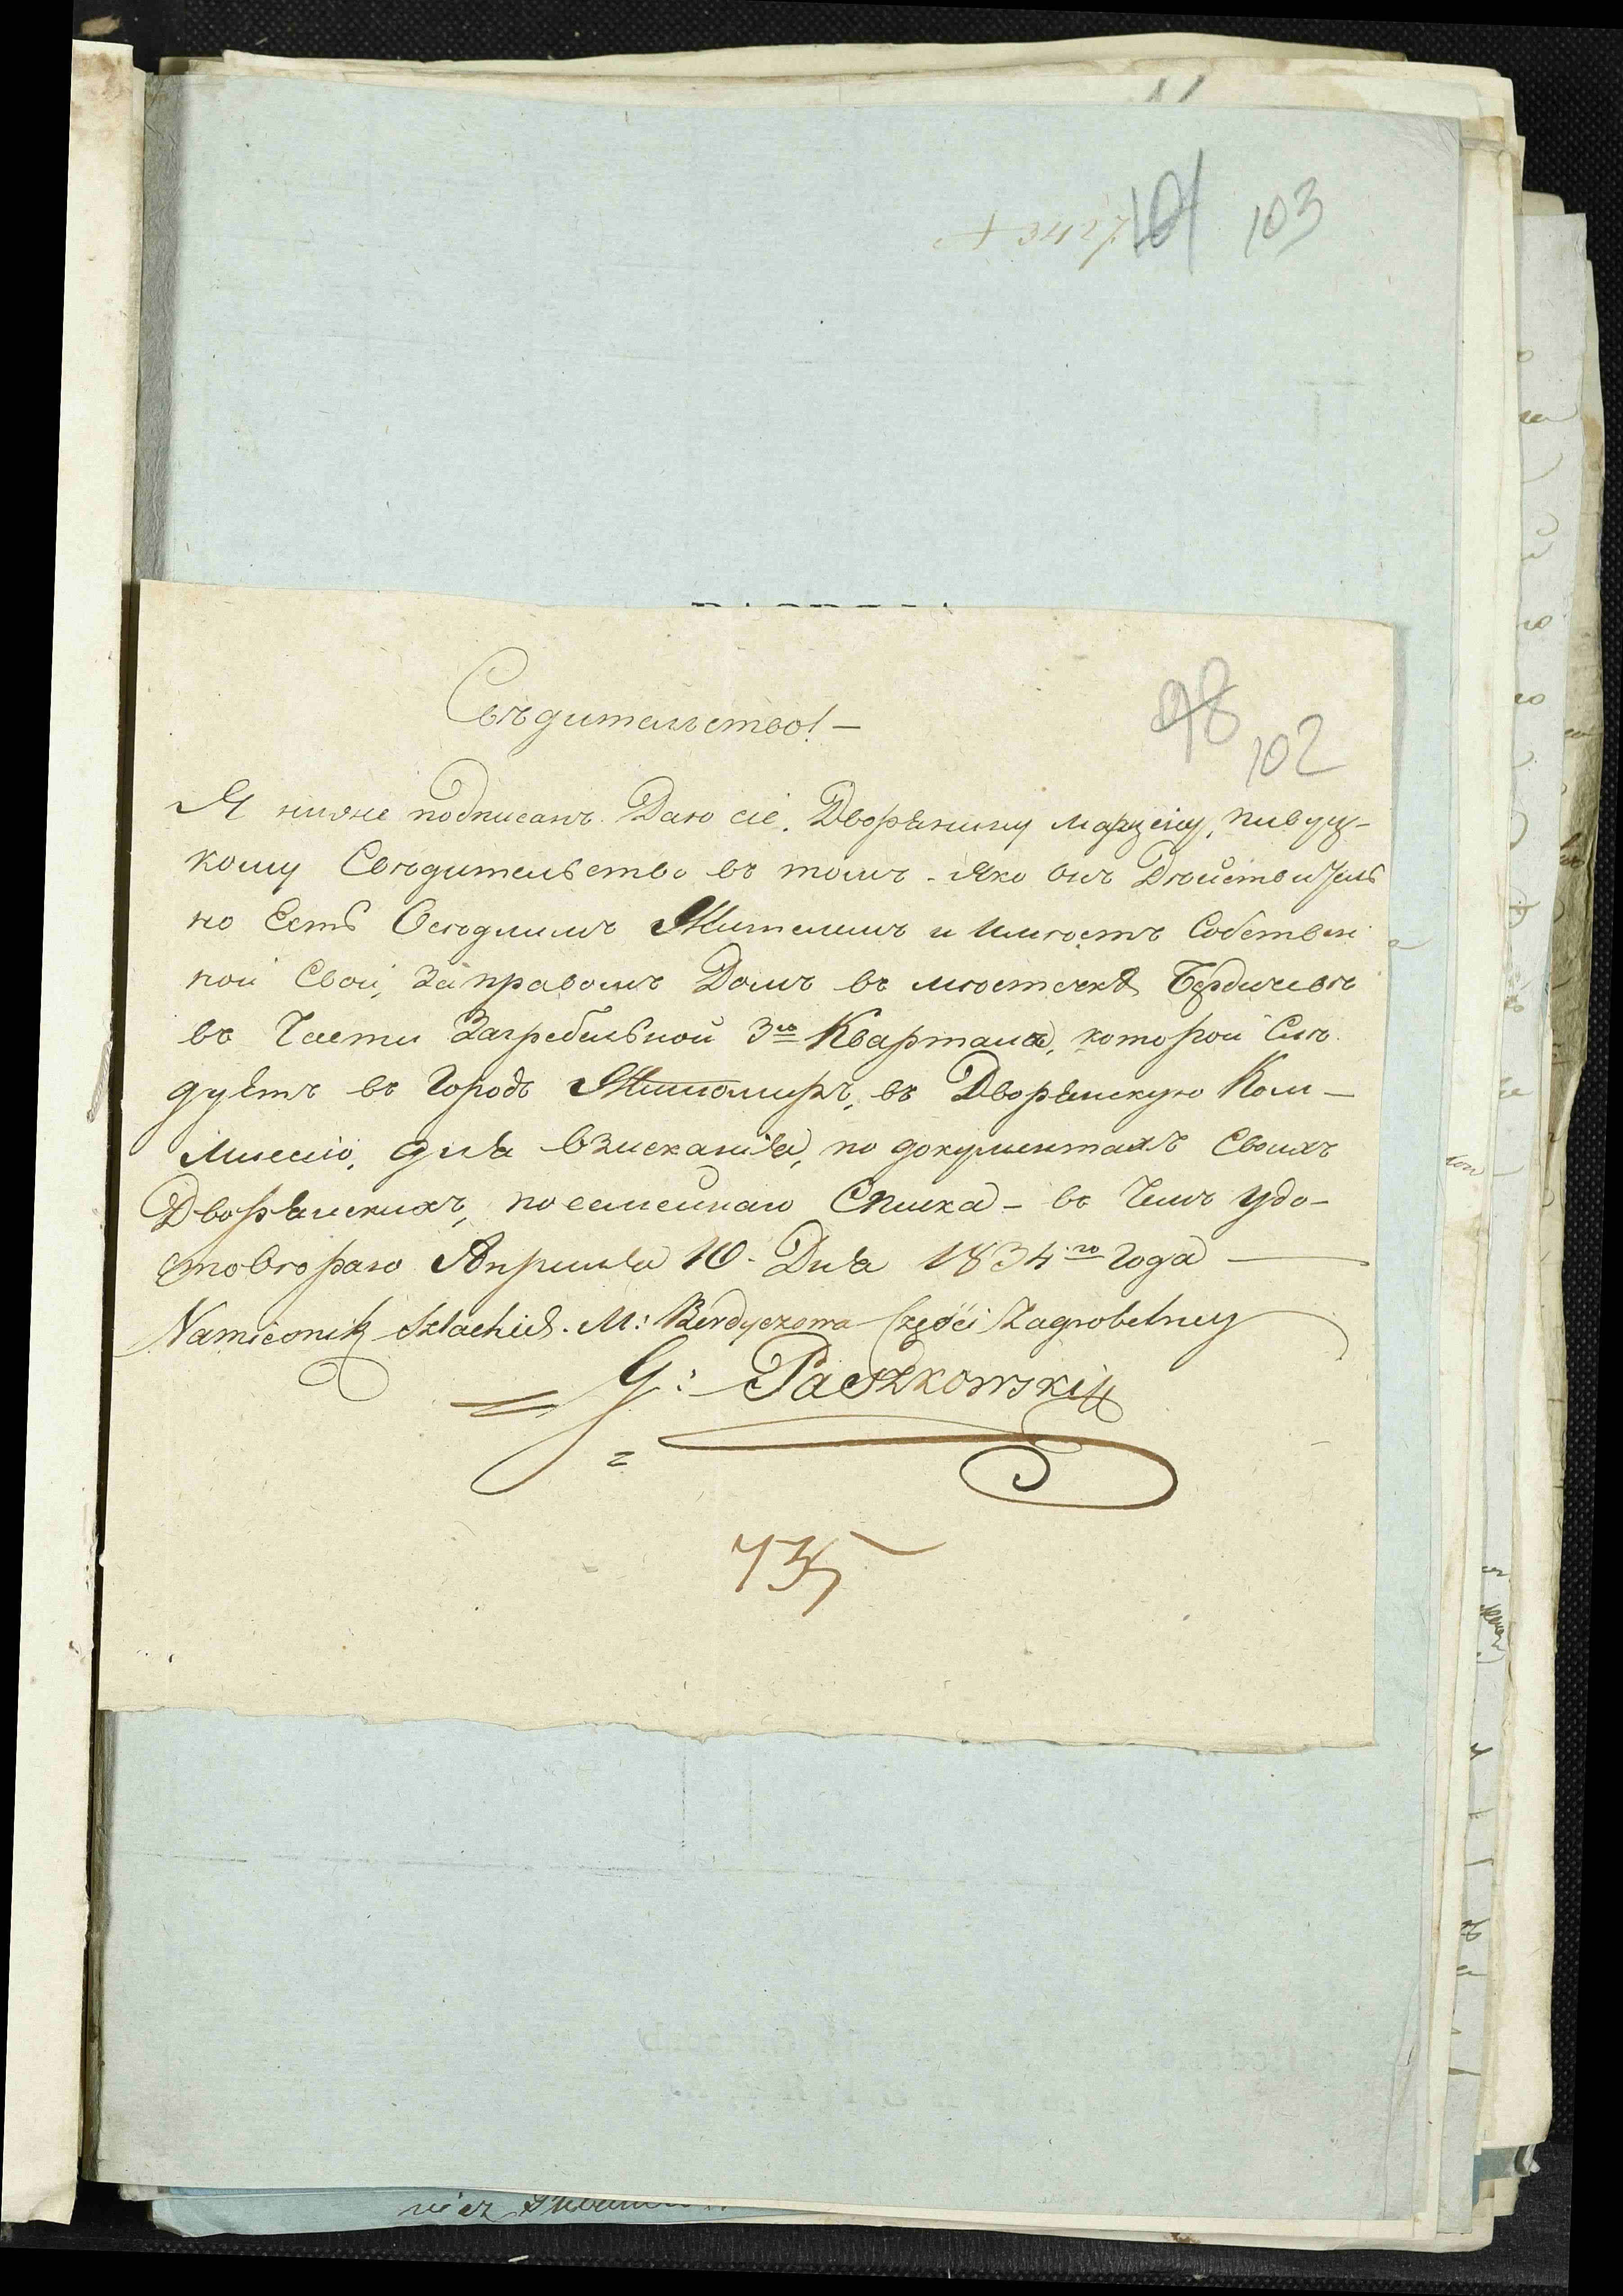 101 103
98
102
Свѣдительство! –
Я ниже подписанъ Даю сіе. Дворянину Марцену, пивуц-
кому Свѣдительство въ томъ - яко онъ Дѣйствитель
но Есть Оседлимъ Жителимъ и имѣетъ Собствен
ной Свой, За правомъ Домъ въ мѣстечкѣ Бердичевѣ
въ Части Загребельной 3го Квартала, которой Слѣ
дуетъ въ Городъ Житомиръ, въ Дворянскую Ком –
миссію, для взисканія, по документахъ Своихъ
Дворянскихъ, посемейнаго Списка – въ Чемъ удо –
стовѣраю Апрыля 10 - Дня 1834го Года —
Namiesnik Szlachid. M: Berdyczowa Części Zagrobelney
G: Paszkowski
735